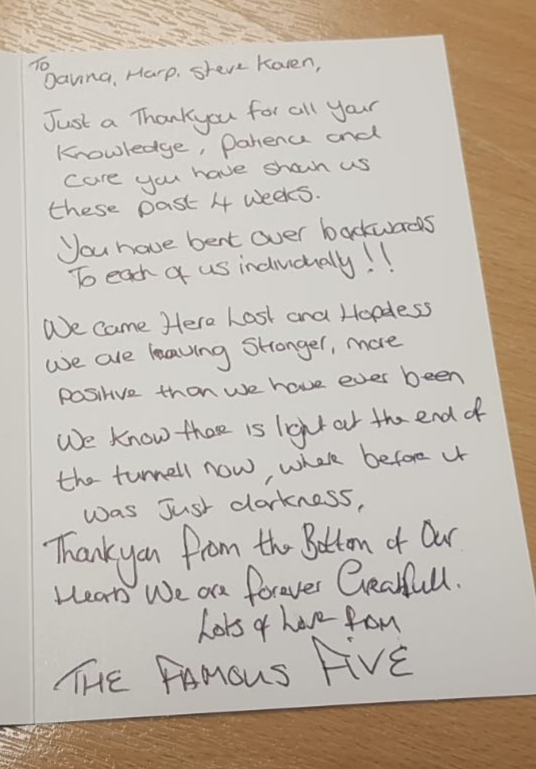 To
Davina, Harp, Steve Karen,
Just a Thankyou for all your
Knowledge, Patience and
Care you have shown us
these past 4 weeks.
You have bent over backwards
To each of us individually!!
We came Here Lost and Hopeless
we are leaving Stronger, more
positive than we have ever been
We know there is light at the end of
the tunnell now, where before it
was Just darkness,
Thankyou from the Bottom of Our
Hearts We are forever Greatfull.
Lots of Love from
THE FAMOUS FIVE